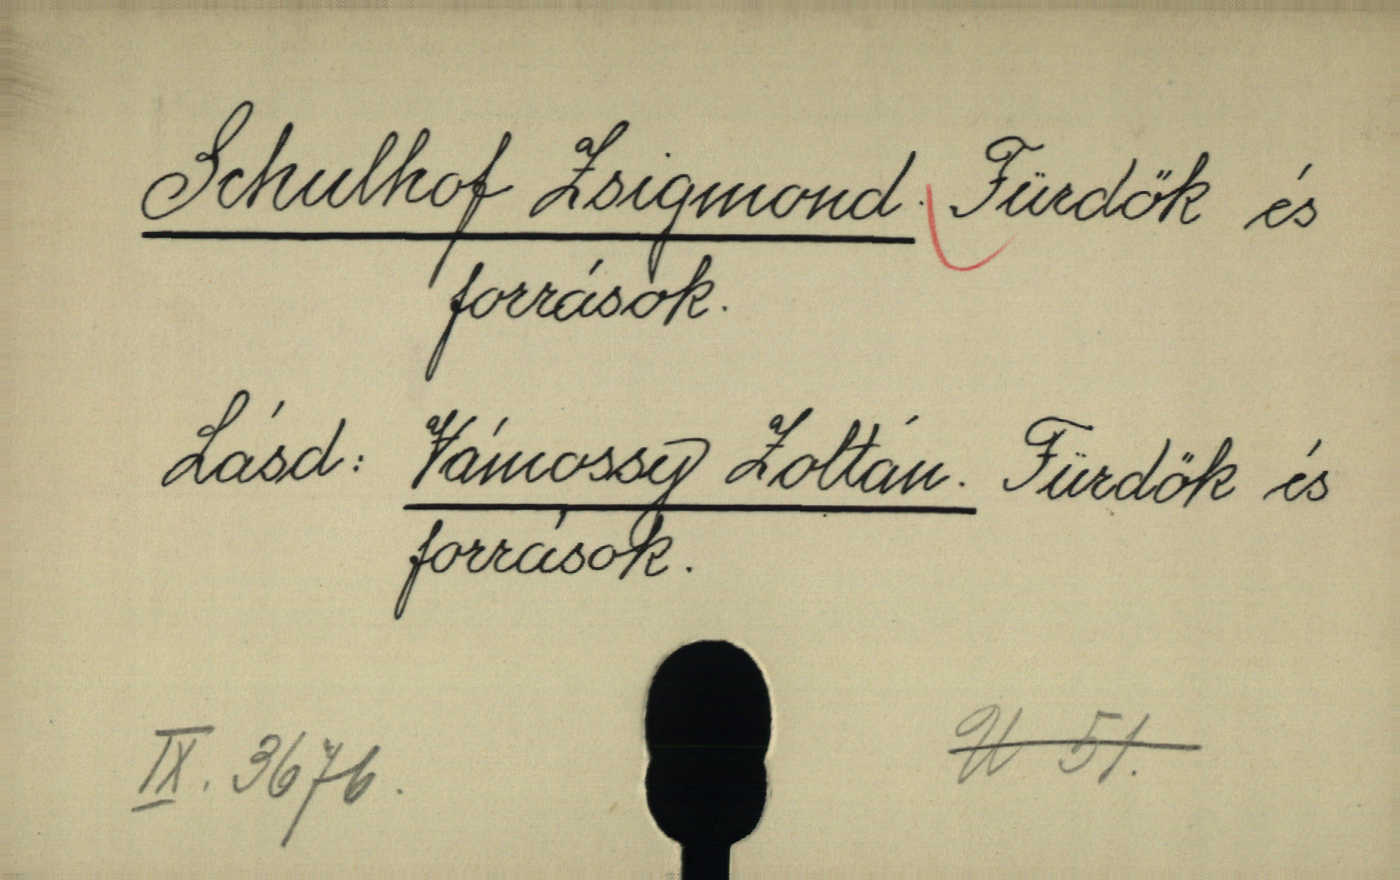 Schulhof Zsigmond. Fürdők és
források.
Lásd: Vámossy Zoltán. Fürdők és
források.
IX. 3676.
U 51.